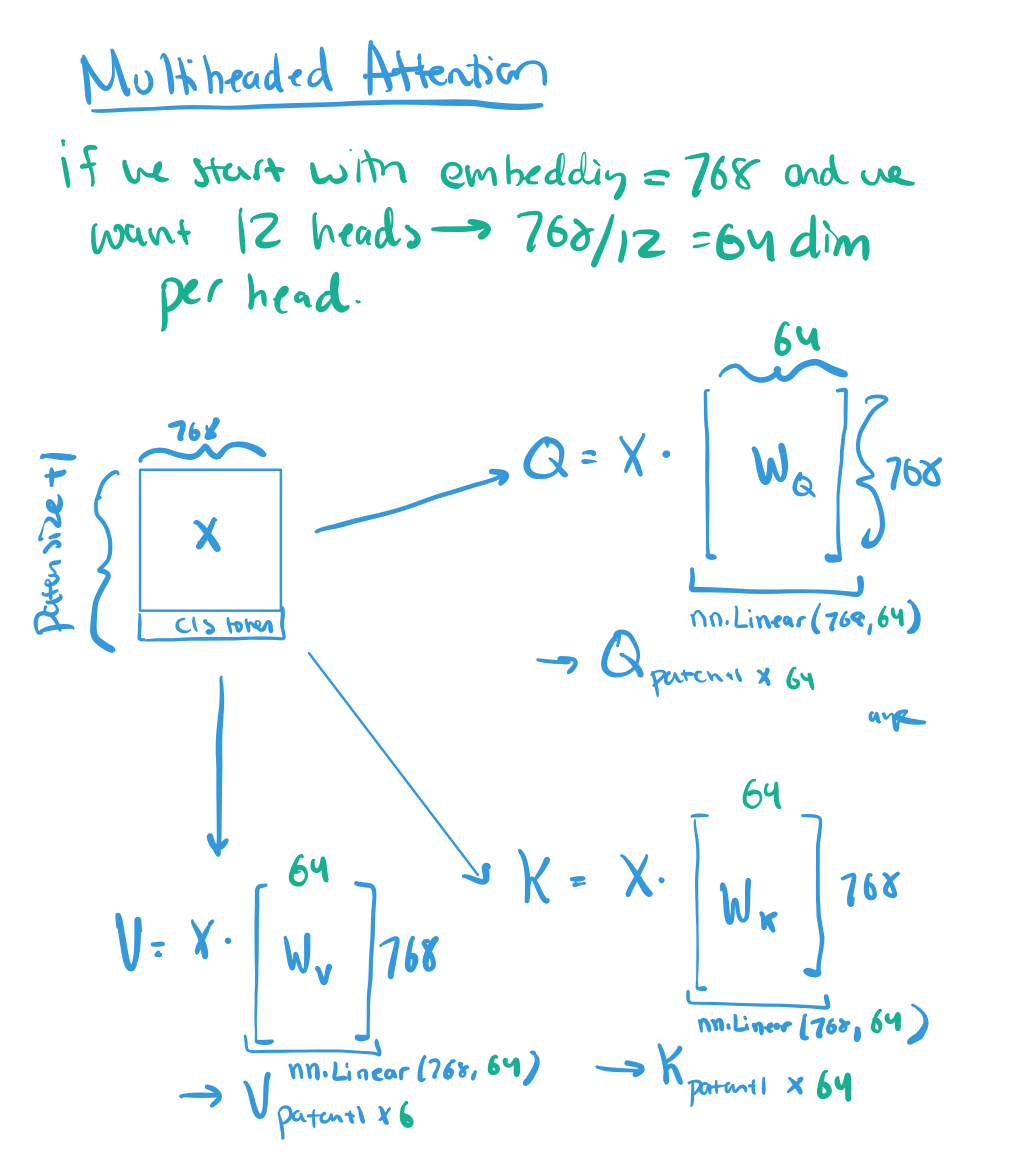 Multiheaded Attention
if we start with embedding = 768 and we
want 12 heads → 768/12 = 64 dim
per head.
768
Patch size + 1
X
Cls token
64
Q = X · [ W_Q ] 768
nn.Linear(768, 64)
→ Q patch+1 x 64
64
K = X · [ W_K ] 768
nn.Linear(768, 64)
→ K patch+1 x 64
64
V = X · [ W_V ] 768
nn.Linear(768, 64)
→ V patch+1 x 6